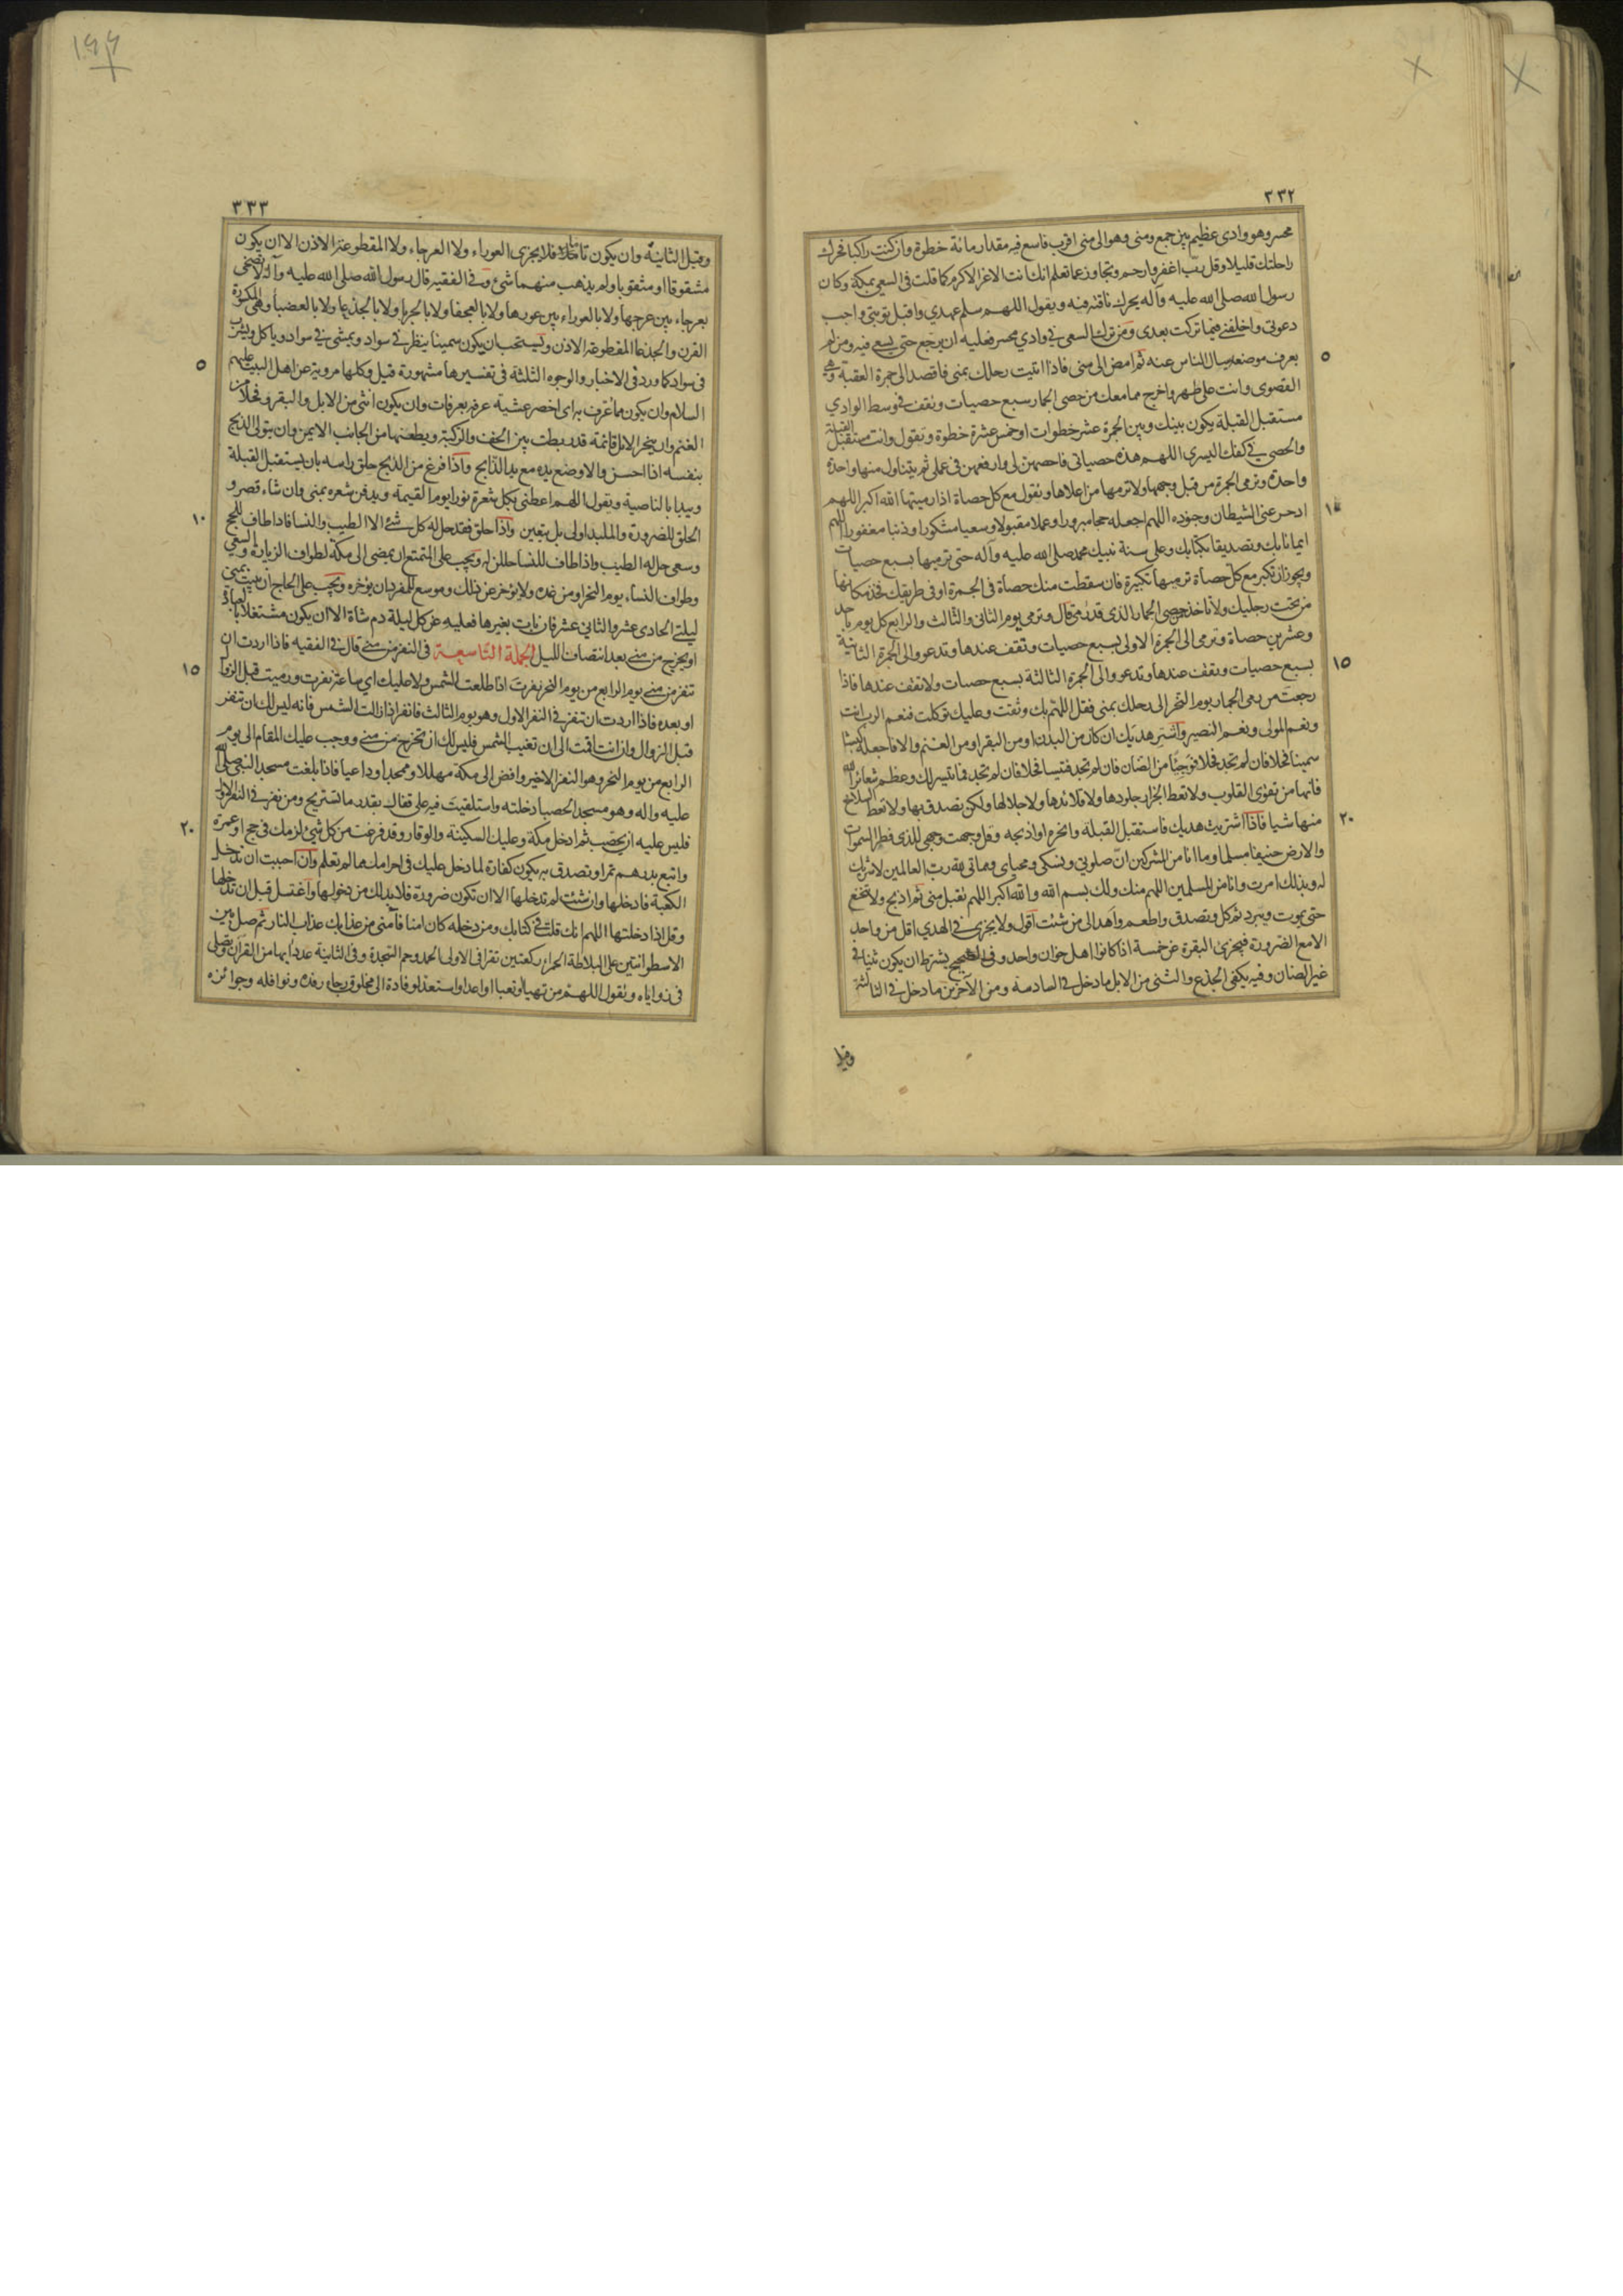 ٣٣٢
محسر وهو وادى عظيم بين جمع ومنى وهو الى منى اقرب فاسع فيه مقدار مائة خطوة وان كنت راكبا فحرك
راحلتك قليلا وقل رب اغفر وارحم وتجاوز عما تعلم انك انت الاعز الاكرم كما قلت فى السعى بمكة وكان
رسول الله صلى الله عليه وآله يحرك ناقته فيه ويقول اللهم سلم عهدي واقبل توبتى واجب
دعوتى واخلفنى فيما تركت بعدى ومن ترك السعى في وادي محسر فعليه ان يرجع حتى يسعى فيه ومن لم
يعرف موضعه سال الناس عنه ثم امض الى منى فاذا اتيت رحلك بمنى فاقصد الى جمرة العقبة وهي
٥
القصوى وانت على طهر واخرج مما معك من حصى الجمار سبع حصيات وتقف في وسط الوادي
مستقبل القبلة يكون بينك وبين الجمرة عشر خطوات او خمس عشرة خطوة وتقول وانت مستقبل القبلة
والحصى في كفك اليسرى اللهم هذه حصياتى فاحصهن لى وارفعهن فى عملى ثم يتناول منها واحدة
واحدة وترمى الجمرة من قبل وجهها ولا ترمها من اعلاها وتقول مع كل حصاة اذا رميتها الله اكبر اللهم
ادحر عنى الشيطان وجنوده اللهم اجعله حجا مبرورا وعملا مقبولا وسعيا مشكورا وذنبا مغفورا اللهم
١٠
ايمانا بك وتصديقا بكتابك وعلى سنة نبيك محمد صلى الله عليه وآله حتى ترميها بسبع حصيات
ويجوز ان تكبر مع كل حصاة ترميها تكبيرة فان سقطت منك حصاة فى الجمرة او فى طريقك فخذ مكانها
من تحت رجليك ولا تاخذ من حصى الجمار الذى قد رمى قال وترمى يوم الثانى والثالث والرابع كل يوم باحد
وعشرين حصاة وترمى الى الجمرة الاولى بسبع حصيات وتقف عندها وتدعو والى الجمرة الثانية
بسبع حصيات وتقف عندها وتدعو والى الجمرة الثالثة بسبع حصيات ولا تقف عندها فاذا
١٥
رجعت من رمى الجمار يوم النحر الى رحلك بمنى فقل اللهم بك وثقت وعليك توكلت فنعم الرب انت
ونعم المولى ونعم النصير واشتر هديك ان كان من البدن او من البقر او من الغنم والا فاجعله كبشا
سمينا فحلا فان لم تجد فحلا فموجئا من الضان فان لم تجد فتيسا فحلا فان لم تجد فما تيسر لك وعظم شعائر الله
فانها من تقوى القلوب ولا تعط الجزار جلودها ولا قلائدها ولا جلالها ولكن تصدق بها ولا تعط السلاخ
منها شيا فاذا اشتريت هديك فاستقبل القبلة وانحره او اذبحه وقل وجهت وجهى للذى فطر السموات
٢٠
والارض حنيفا مسلما وما انا من المشركين ان صلوتي ونسكى ومحياى ومماتى لله رب العالمين لا شريك
له وبذلك امرت وانا من المسلمين اللهم منك ولك بسم الله والله اكبر اللهم تقبل منى ثم اذبح ولا تنخع
حتى يموت ويبرد ثم كل وتصدق واطعم واهد الى من شئت اقول ولا يجزى في الهدي اقل من واحد
الا مع الضرورة فيجزى البقرة عن خمسة اذا كانوا اهل خوان واحد وفى الصحيح بشرط ان يكون ثنيا فى
غير الضان وفيه يكفى الجذع والثنى من الابل ما دخل في السادسة ومن الآخرين ما دخل في الثالثة
وقيل
٣٣٣
وقيل الثانية وان يكون تاما فلا يجزى العوراء ولا العرجاء ولا المقطوعة الاذن الا ان يكون
مشقوقا او مثقوبا ولم يذهب منهما شئ وفي الفقيه قال رسول الله صلى الله عليه وآله لا يضحى
بعرجاء بين عرجها ولا بالعوراء بين عورها ولا بالعجفا ولا بالجربا ولا بالجذعا ولا بالعضبا وهى المكسورة
القرن والجذعا المقطوعة الاذن ويستحب ان يكون سمينا ينظر فى سواد ويمشى في سواد وياكل ويشرب
فى سواد كما ورد فى الاخبار والوجوه الثلثة فى تفسيرها مشهورة قيل وكلها مروية عن اهل البيت عليهم
٥
السلام وان يكون مما عرف به اى احضر عشية عرفة بعرفات وان يكون انثى من الابل والبقر وفحلا من
الغنم وان ينحر الابل قائمة قد ربطت بين الخف والركبة ويطعنها من الجانب الايمن وان يتولى الذبح
بنفسه اذا احسن والا وضع يده مع يد الذابح واذا فرغ من الذبح حلق راسه بان يستقبل القبلة
ويبدا بالناصية ويقول اللهم اعطنى بكل شعرة نورا يوم القيمة ويدفن شعره بمنى وان شاء قصر و
الحلق للضرورة والملبد اولى بل يتعين واذا حلق فقد حل له كل شئ الا الطيب والنسا فاذا طاف للحج
١٠
وسعى حل له الطيب واذا طاف للنسا حللن له ويجب على المتمتع ان يمضى الى مكة لطواف الزيارة والسعى
وطواف النساء يوم النحر او من غده ولا يؤخر عن ذلك وموسع للمفرد ان يؤخره ويجب على الحاج ان يبيت بمنى
ليلتى الحادى عشر والثانى عشر فان بات بغيرها فعليه عن كل ليلة دم شاة الا ان يكون مشتغلا بالعبادة
او يخرج من منى بعد انتصاف الليل الجملة التاسعة فى النفر من منى قال في الفقيه فاذا اردت ان
تنفر من منى يوم الرابع من يوم النحر نفرت اذا طلعت الشمس ولا عليك اي ساعة نفرت ورميت قبل الزوال
١٥
او بعده فاذا اردت ان تنفر في النفر الاول وهو يوم الثالث فانفر اذا زالت الشمس فانه ليس لك ان تنفر
قبل الزوال وان انت اقمت الى ان تغيب الشمس فليس لك ان تخرج من منى ووجب عليك المقام الى يوم
الرابع من يوم النحر وهو النفر الاخير وافض الى مكة مهللا وممجدا وداعيا فاذا بلغت مسجد النبي صلى الله
عليه واله وهو مسجد الحصبا دخلته واستلقيت فيه على قفاك بقدر ما تستريح ومن نفر في النفر الاول
فليس عليه ان يحصب ثم ادخل مكة وعليك السكينة والوقار وقد فرغت من كل شئ لزمك فى حج او عمرة
٢٠
وابتع بدرهم تمرا وتصدق به يكون كفارة لما دخل عليك فى احرامك مما لم تعلم وان احببت ان تدخل
الكعبة فادخلها وان شئت لم تدخلها الا ان تكون ضرورة فلا بد لك من دخولها واغتسل قبل ان تدخلها
وقل اذا دخلتها اللهم انك قلت في كتابك ومن دخله كان امنا فآمنى من عذابك عذاب النار ثم صل بين
الاسطوانتين على البلاطة الحمراء ركعتين تقرا فى الاولى الحمد وحم السجدة وفى الثانية عدد آيها من القران وتصلى
فى زواياه وتقول اللهم من تهيا وتعبا او اعد او استعد لوفادة الى مخلوق رجاء رفده ونوافله وجوائزه